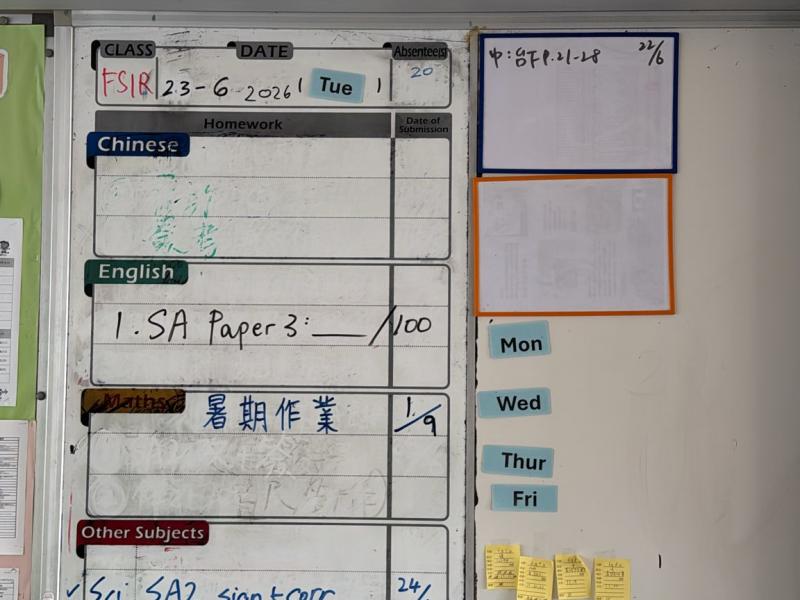 CLASS DATE Absentee(s)
FSIR 23-6-2026 ( Tue ) 20
Homework Date of Submission
Chinese
English
1. SA Paper 3: ___ /100
Maths 暑期作業 1/9
Other Subjects
✓ Sci SA2 sign + corr 24/
22/6
Mon
Wed
Thur
Fri